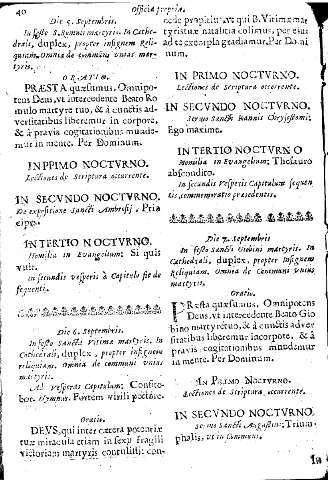 40
Officia propria.
Die 5. Septembris.
In festo S. Romuli martyris. In Cathe-
drali, duplex, propter insignem Reli-
quiam. Omnia de communi unius mar-
tyris.
ORATIO.
PRÆSTA quæsumus, Omnipo-
tens Deus, vt intercedente Beato Ro
mulo martyre tuo, & à cunctis ad-
versitatibus liberemur in corpore,
& à pravis cogitationibus munde-
mur in mente. Per Dominum.
IN PRIMO NOCTVRNO.
Lectiones de Scriptura occurrente.
IN SECVNDO NOCTVRNO.
De expositione Sancti Ambrosij,
IN TERTIO NOCTVRNO.
Homilia in Evangelium; Si quis
vult.
In secundis Vesperis à Capitulo fit de
sequenti.
Die 6. Septembris.
In festo Sancti martyris. In
Cathedrali, duplex, propter insignem
Reliquiam. Omnia de communi unius
martyris.
Ad Vesperas Capitulum; Confite-
bor. Hymnus. Fortem virili pectore.
Oratio.
DEVS, qui inter cætera potentiæ
tuæ miracula etiam in sexu fragili
victoriam martyrij contulisti: con-
cede propitius, vt qui B. martyris
tuæ natalitia colimus, per eius
ad te exempla gradiamur. Per Domi
num.
IN PRIMO NOCTVRNO.
Lectiones de Scriptura occurrente.
IN SECVNDO NOCTVRNO.
Sermo Sancti Ioannis Chrysostomi;
Ego maxime.
IN TERTIO NOCTVRNO
Homilia in Evangelium; Thesauro
abscondito.
In secundis Vesperis Capitulum sequen
tis, commemoratio præcedentis.
Die 7. Septembris
In festo Sancti martyris. In
Cathedrali, duplex, propter insignem
Reliquiam. Omnia de Communi unius
martyris.
Oratio.
PRæsta quæsumus, Omnipotens
Deus, vt intercedente Beato
martyre tuo, & à cunctis adver
sitatibus liberemur in corpore, & à
pravis cogitationibus mundemur
in mente. Per Dominum.
IN PRIMO NOCTVRNO.
Lectiones de Scriptura, occurrente.
IN SECVNDO NOCTVRNO.
Sermo Sancti Augustini; Trium-
phalis, ut in Communi.